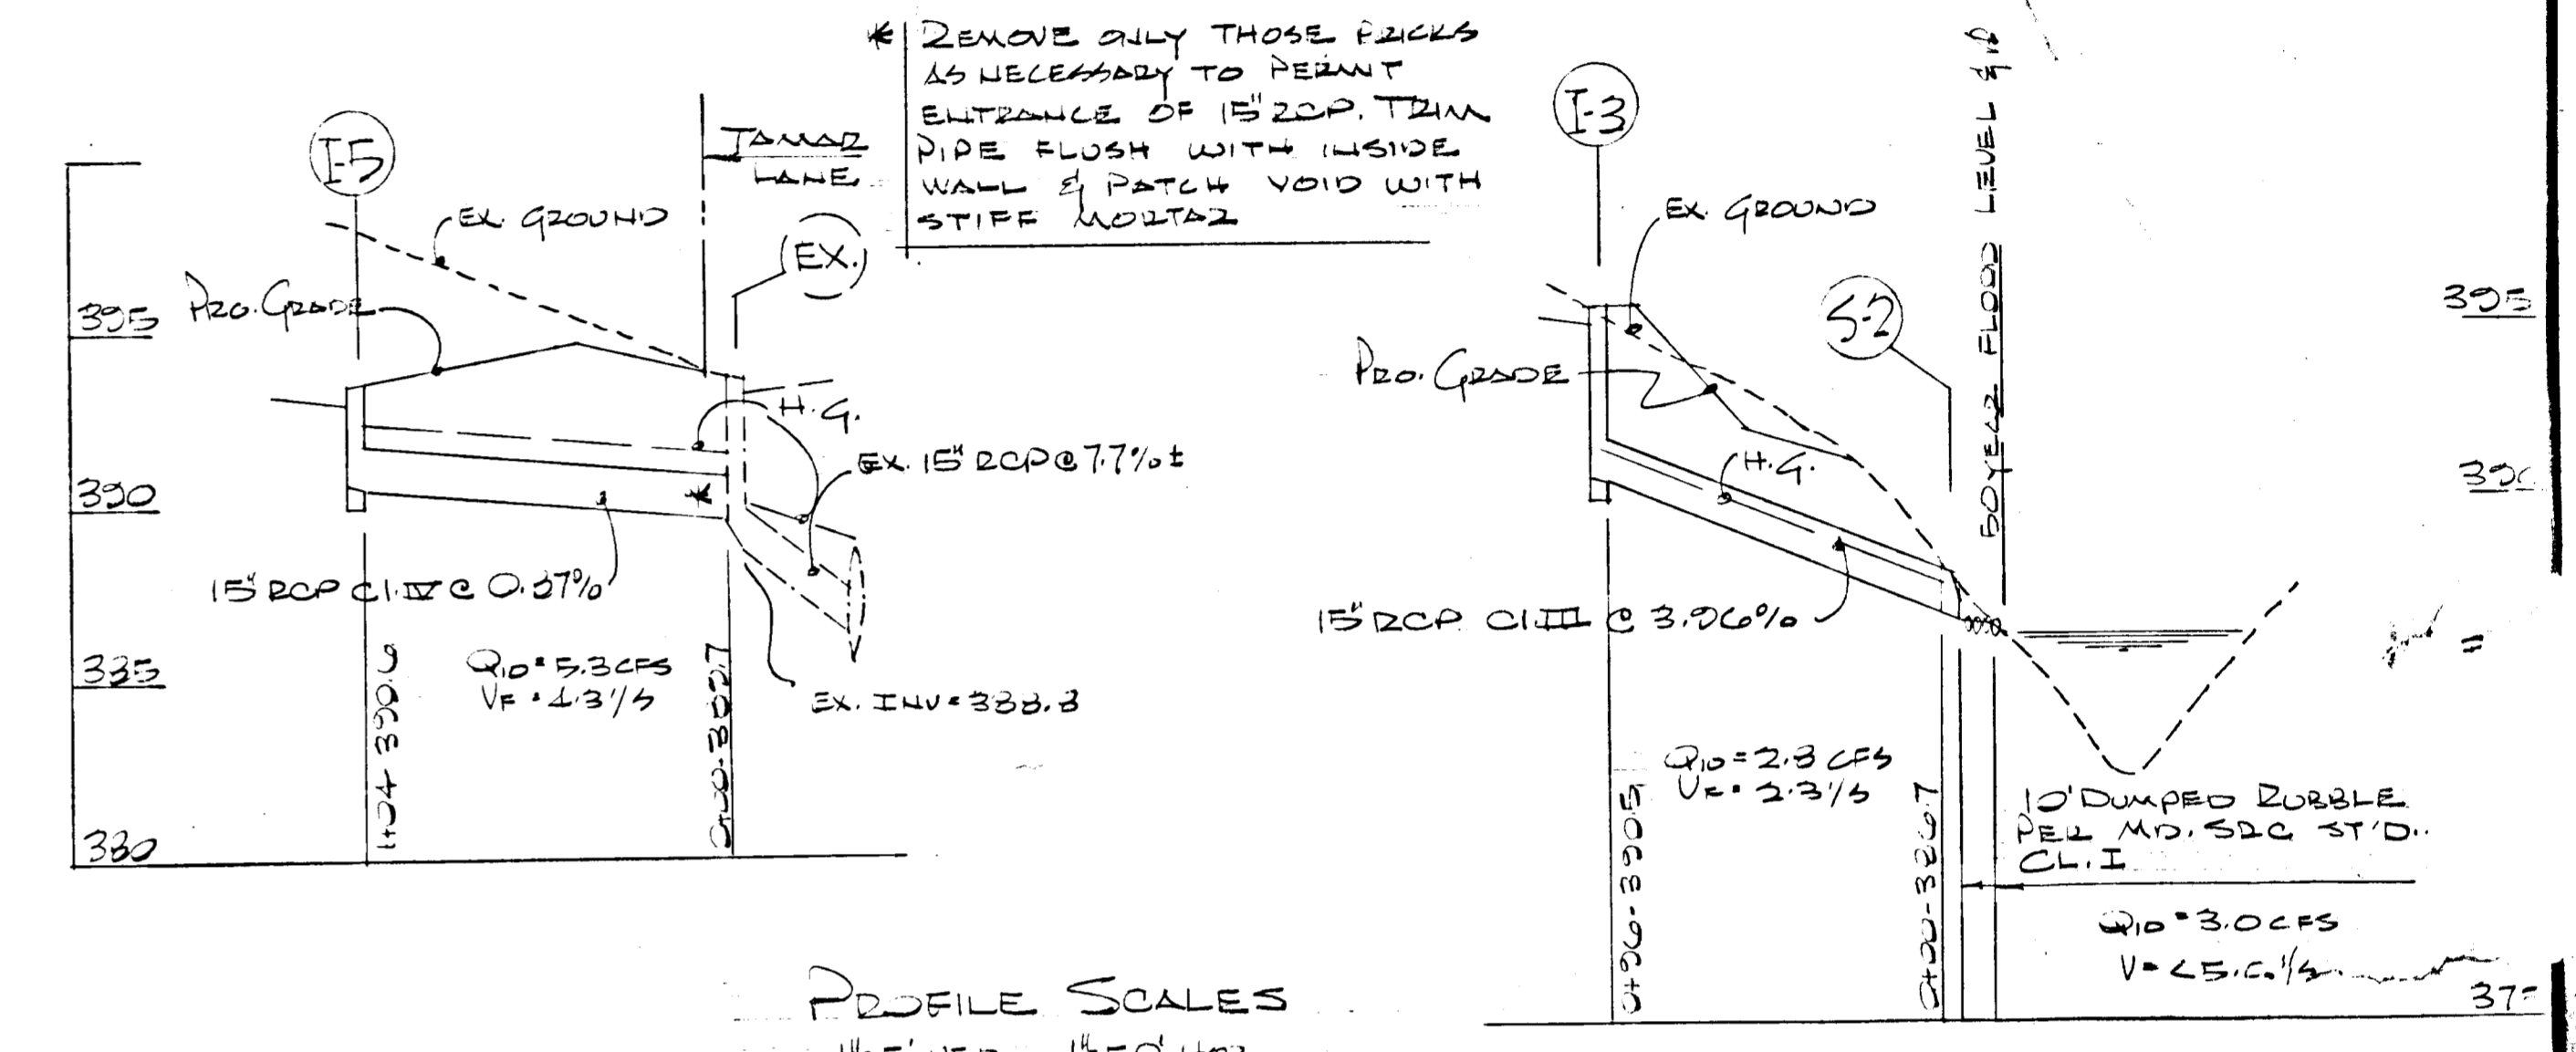 * REMOVE ONLY THOSE BRICKS
AS NECESSARY TO PERMIT
ENTRANCE OF 15" RCP. TRIM
PIPE FLUSH WITH INSIDE
WALL & PATCH VOID WITH
STIFF MORTAR
I-5
TAMAR
LANE
EX. GROUND
(EX.)
PRO. GRADE
395
H.G.
EX. 15" RCP @ 7.7% ±
390
*
15" RCP CL. IV @ 0.87%
385
Q10 = 5.3 CFS
VF = 4.3'/S
EX. INV = 388.8
1+04 390.6
0+00 - 389.7
380
I-3
EX. GROUND
S-2
50 YEAR FLOOD LEVEL
395
PRO. GRADE
H.G.
15" RCP CL. III @ 3.96%
Q10 = 2.3 CFS
VF = 2.3'/S
0+96 - 390.5
0+00 - 386.7
10' DUMPED RUBBLE
PER MD. SRC ST'D.
CL. I
Q10 = 3.0 CFS
PROFILE SCALES